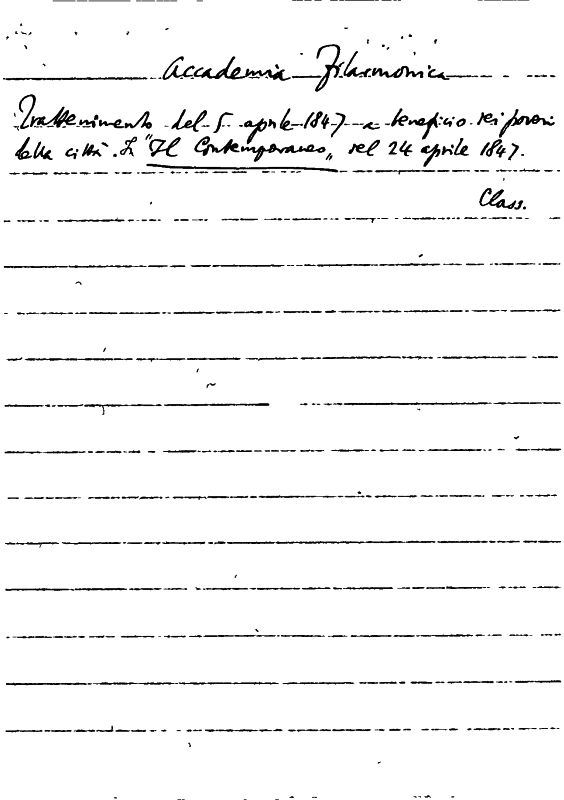 Accademia Filarmonica
Trattenimento del 5 aprile 1847 a beneficio dei poveri
della città. In "Il Contemporaneo„ del 24 aprile 1847.
Class.